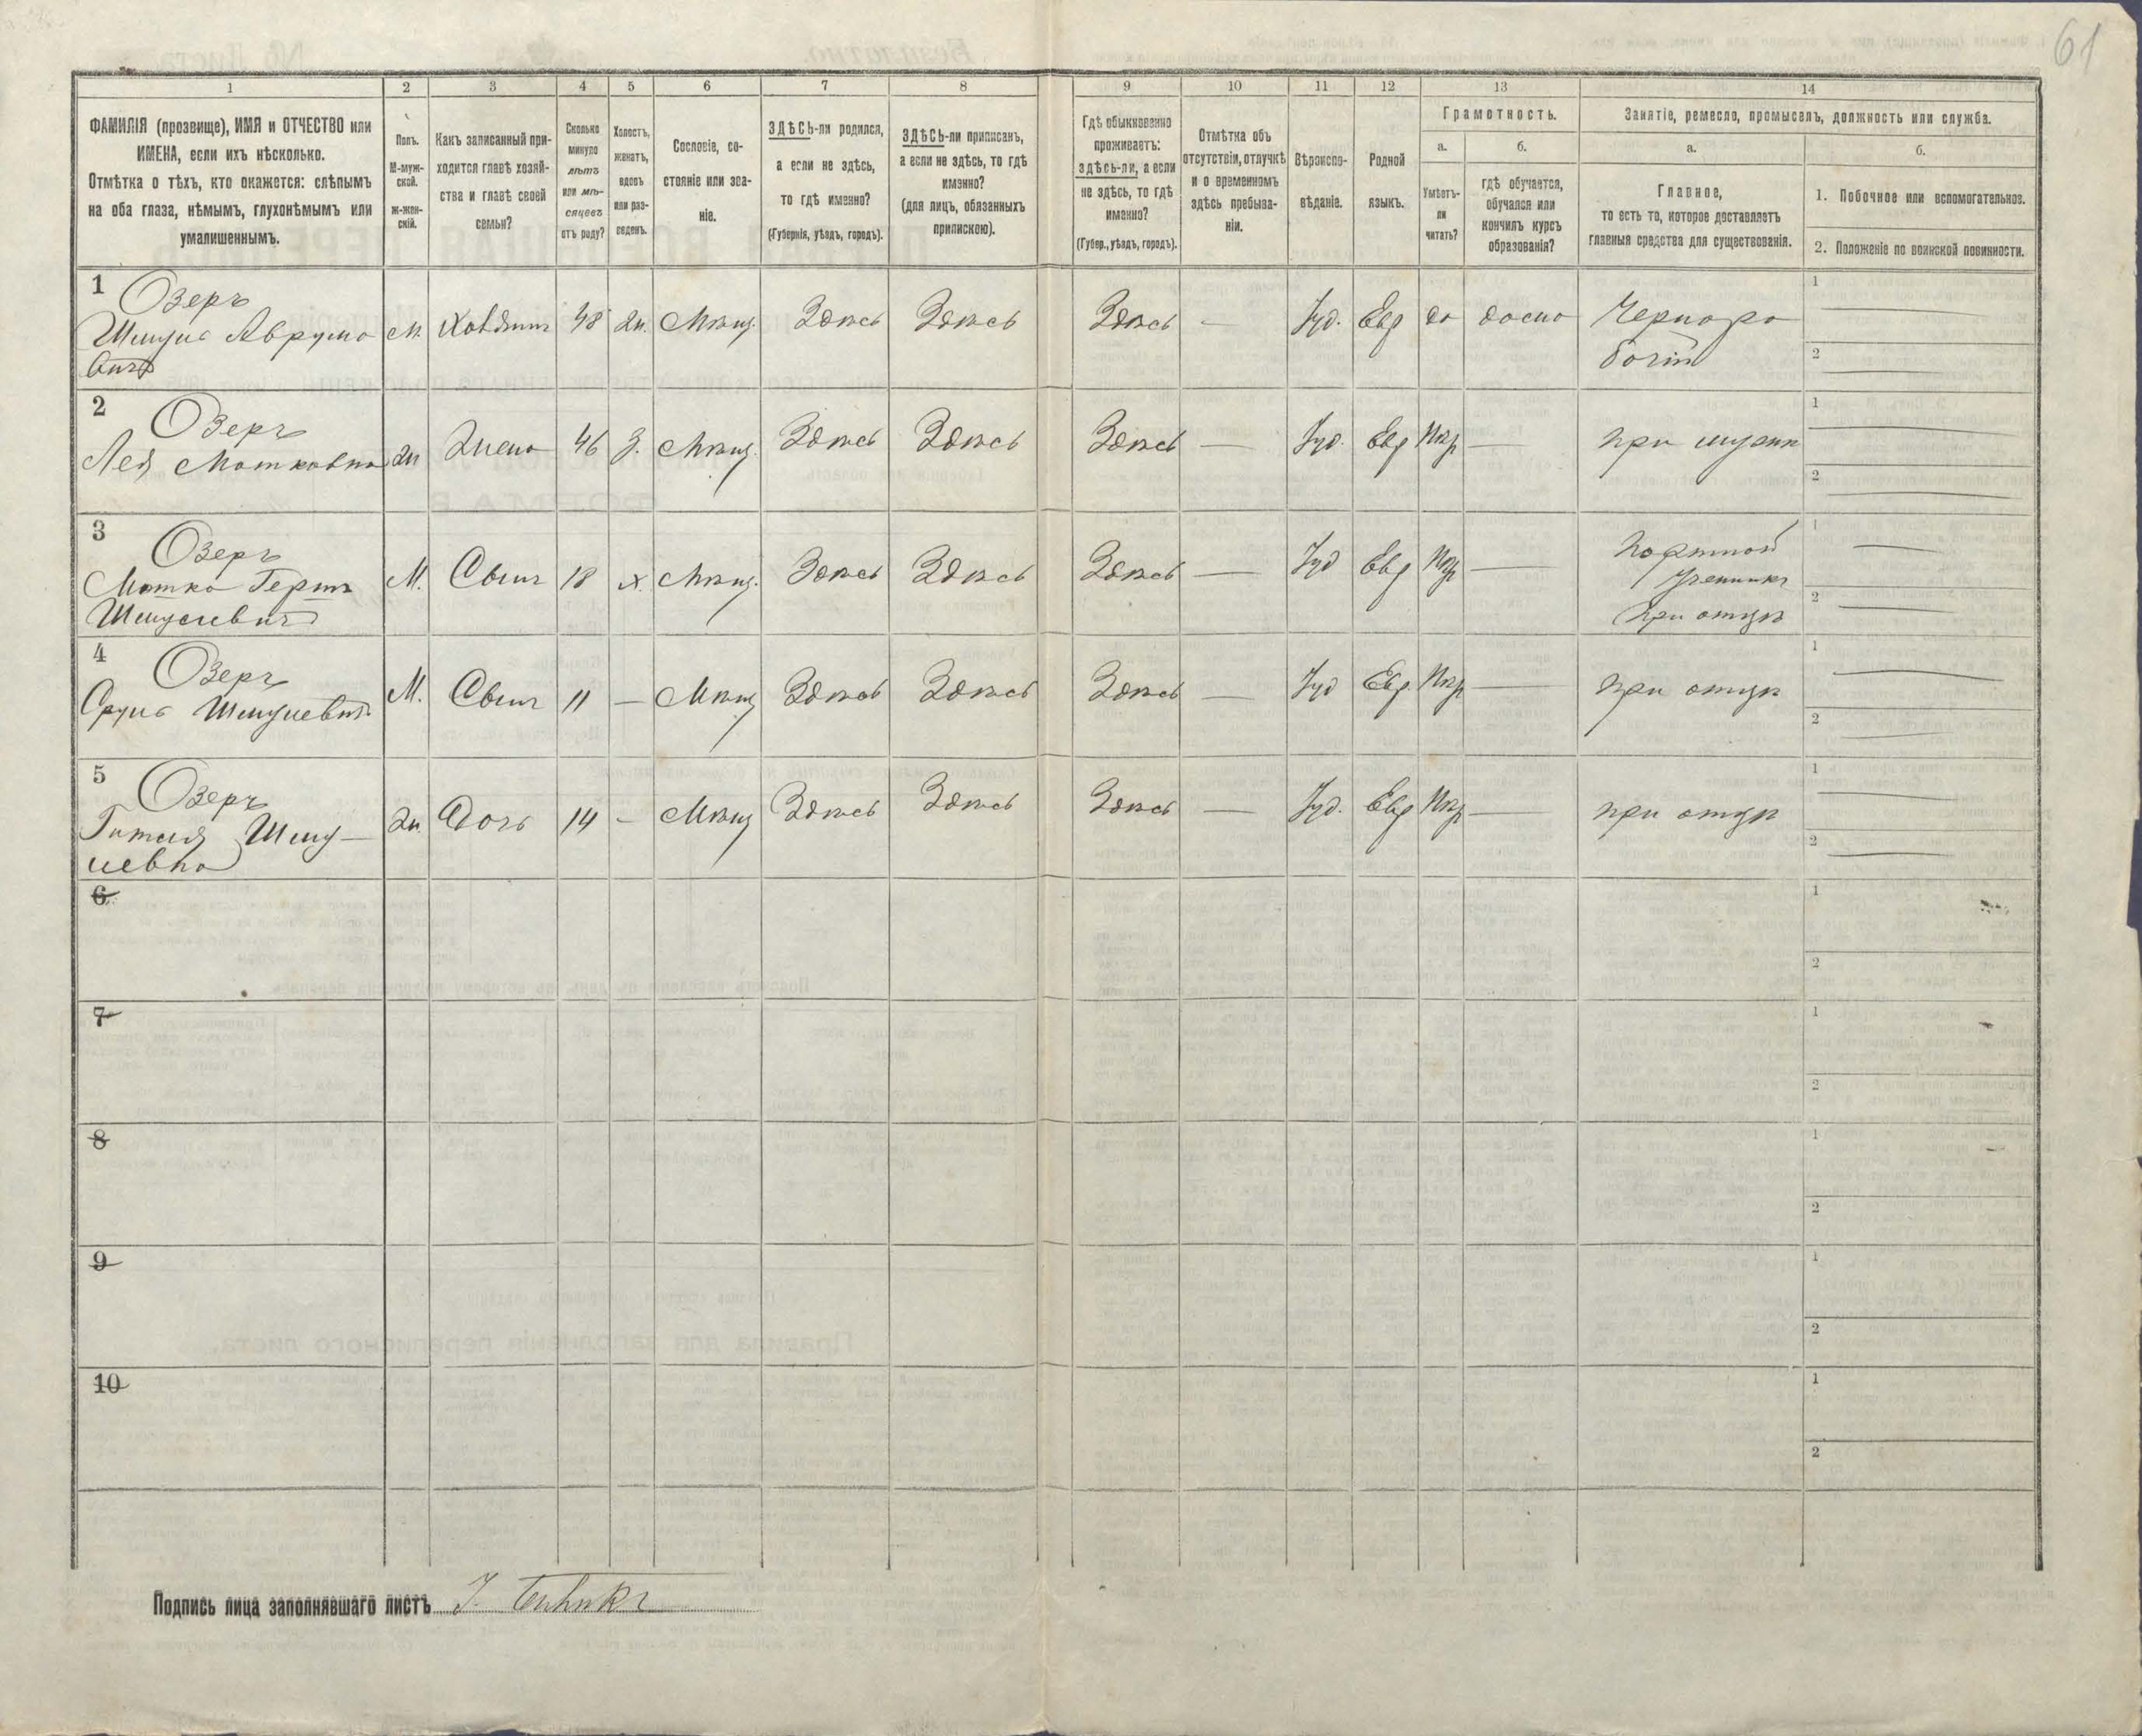 61
1 2 3 4 5 6 7 8 9 10 11 12 13 14
ФАМИЛІЯ (прозвище), ИМЯ и ОТЧЕСТВО или
ИМЕНА, если ихъ нѣсколько.
Отмѣтка о тѣхъ, кто окажется: слѣпымъ
на оба глаза, нѣмымъ, глухонѣмымъ или
умалишеннымъ.
Полъ.
М-муж-
ской.
ж-жен-
скій.
Какъ записанный при-
ходится главѣ хозяй-
ства и главѣ своей
семьи?
Сколько
минуло
лѣтъ
или мѣ-
сяцевъ
отъ роду?
Холостъ,
женатъ,
вдовъ
или раз-
веденъ.
Сословіе, со-
стояніе или зва-
ніе.
ЗДѢСЬ-ли родился,
а если не здѣсь,
то гдѣ именно?
(Губернія, уѣздъ, городъ).
ЗДѢСЬ-ли приписанъ,
а если не здѣсь, то гдѣ
именно?
(для лицъ, обязанныхъ
припискою).
Гдѣ обыкновенно
проживаетъ:
здѣсь-ли, а если
не здѣсь, то гдѣ
именно?
(Губер., уѣздъ, городъ).
Отмѣтка объ
отсутствіи, отлучкѣ
и о временномъ
здѣсь пребыва-
ніи.
Вѣроиспо-
вѣданіе.
Родной
языкъ.
Грамотность.
а.
Умѣетъ-
ли
читать?
б.
гдѣ обучается,
обучался или
кончилъ курсъ
образованія?
Занятіе, ремесло, промыселъ, должность или служба.
а.
Главное,
то есть то, которое доставляетъ
главныя средства для существованія.
б.
1. Побочное или вспомогательное.
2. Положеніе по воинской повинности.
1 Озеръ
Шмуль Аврумо
вичъ
М. Хозяинъ 48 Ж. Мѣщ. Здѣсь Здѣсь Здѣсь — Іуд. Евр да дома Чернора
бочій
1
2
2 Озеръ
Лея Мотковна
Ж Жена 46 З. Мѣщ. Здѣсь Здѣсь Здѣсь — Іуд. Евр Нѣт — при мужѣ
1
2
3 Озеръ
Мотко Герш
Шмулевичъ
М. Сынъ 18 Х. Мѣщ. Здѣсь Здѣсь Здѣсь — Іуд Евр Нѣт — Портной
Ученикъ
при отцѣ
1
2
4 Озеръ
Сруль Шмулевичъ
М. Сынъ 11 — Мѣщ Здѣсь Здѣсь Здѣсь — Іуд Евр. Нѣт — при отцѣ
1
2
5 Озеръ
Гитля Шму—
левна
Ж. Дочь 14 — Мѣщ Здѣсь Здѣсь Здѣсь — Іуд. Евр Нѣт — при отцѣ
1
2
6
1
2
7
1
2
8
1
2
9
1
2
10
1
2
Подпись лица заполнявшаго листъ